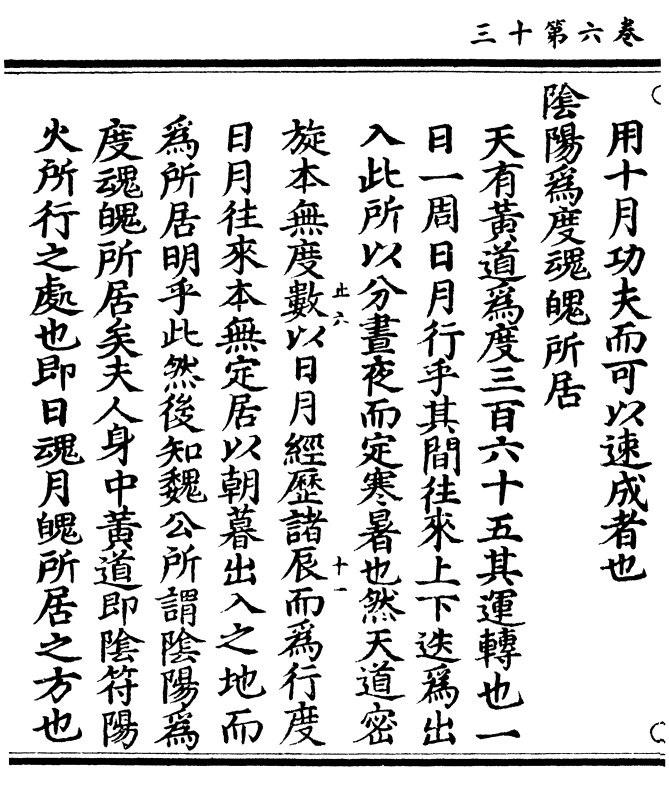 卷六第十三
用十月功夫而可以速成者也
陰陽為度魂魄所居
天有黃道為度三百六十五其運轉也一
日一周日月行乎其間往來上下迭為出
入此所以分晝夜而定寒暑也然天道密
止六
十一
旋本無度數以日月經歷諸辰而為行度
日月往來本無定居以朝暮出入之地而
為所居明乎此然後知魏公所謂陰陽為
度魂魄所居矣夫人身中黃道即陰符陽
火所行之處也即日魂月魄所居之方也